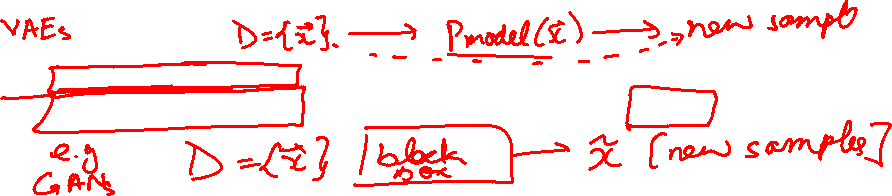 VAEs D={x⃗}. → Pmodel(x⃗) → new sampl
e.g D={x⃗} block box → x̃ [new samples]
GANs